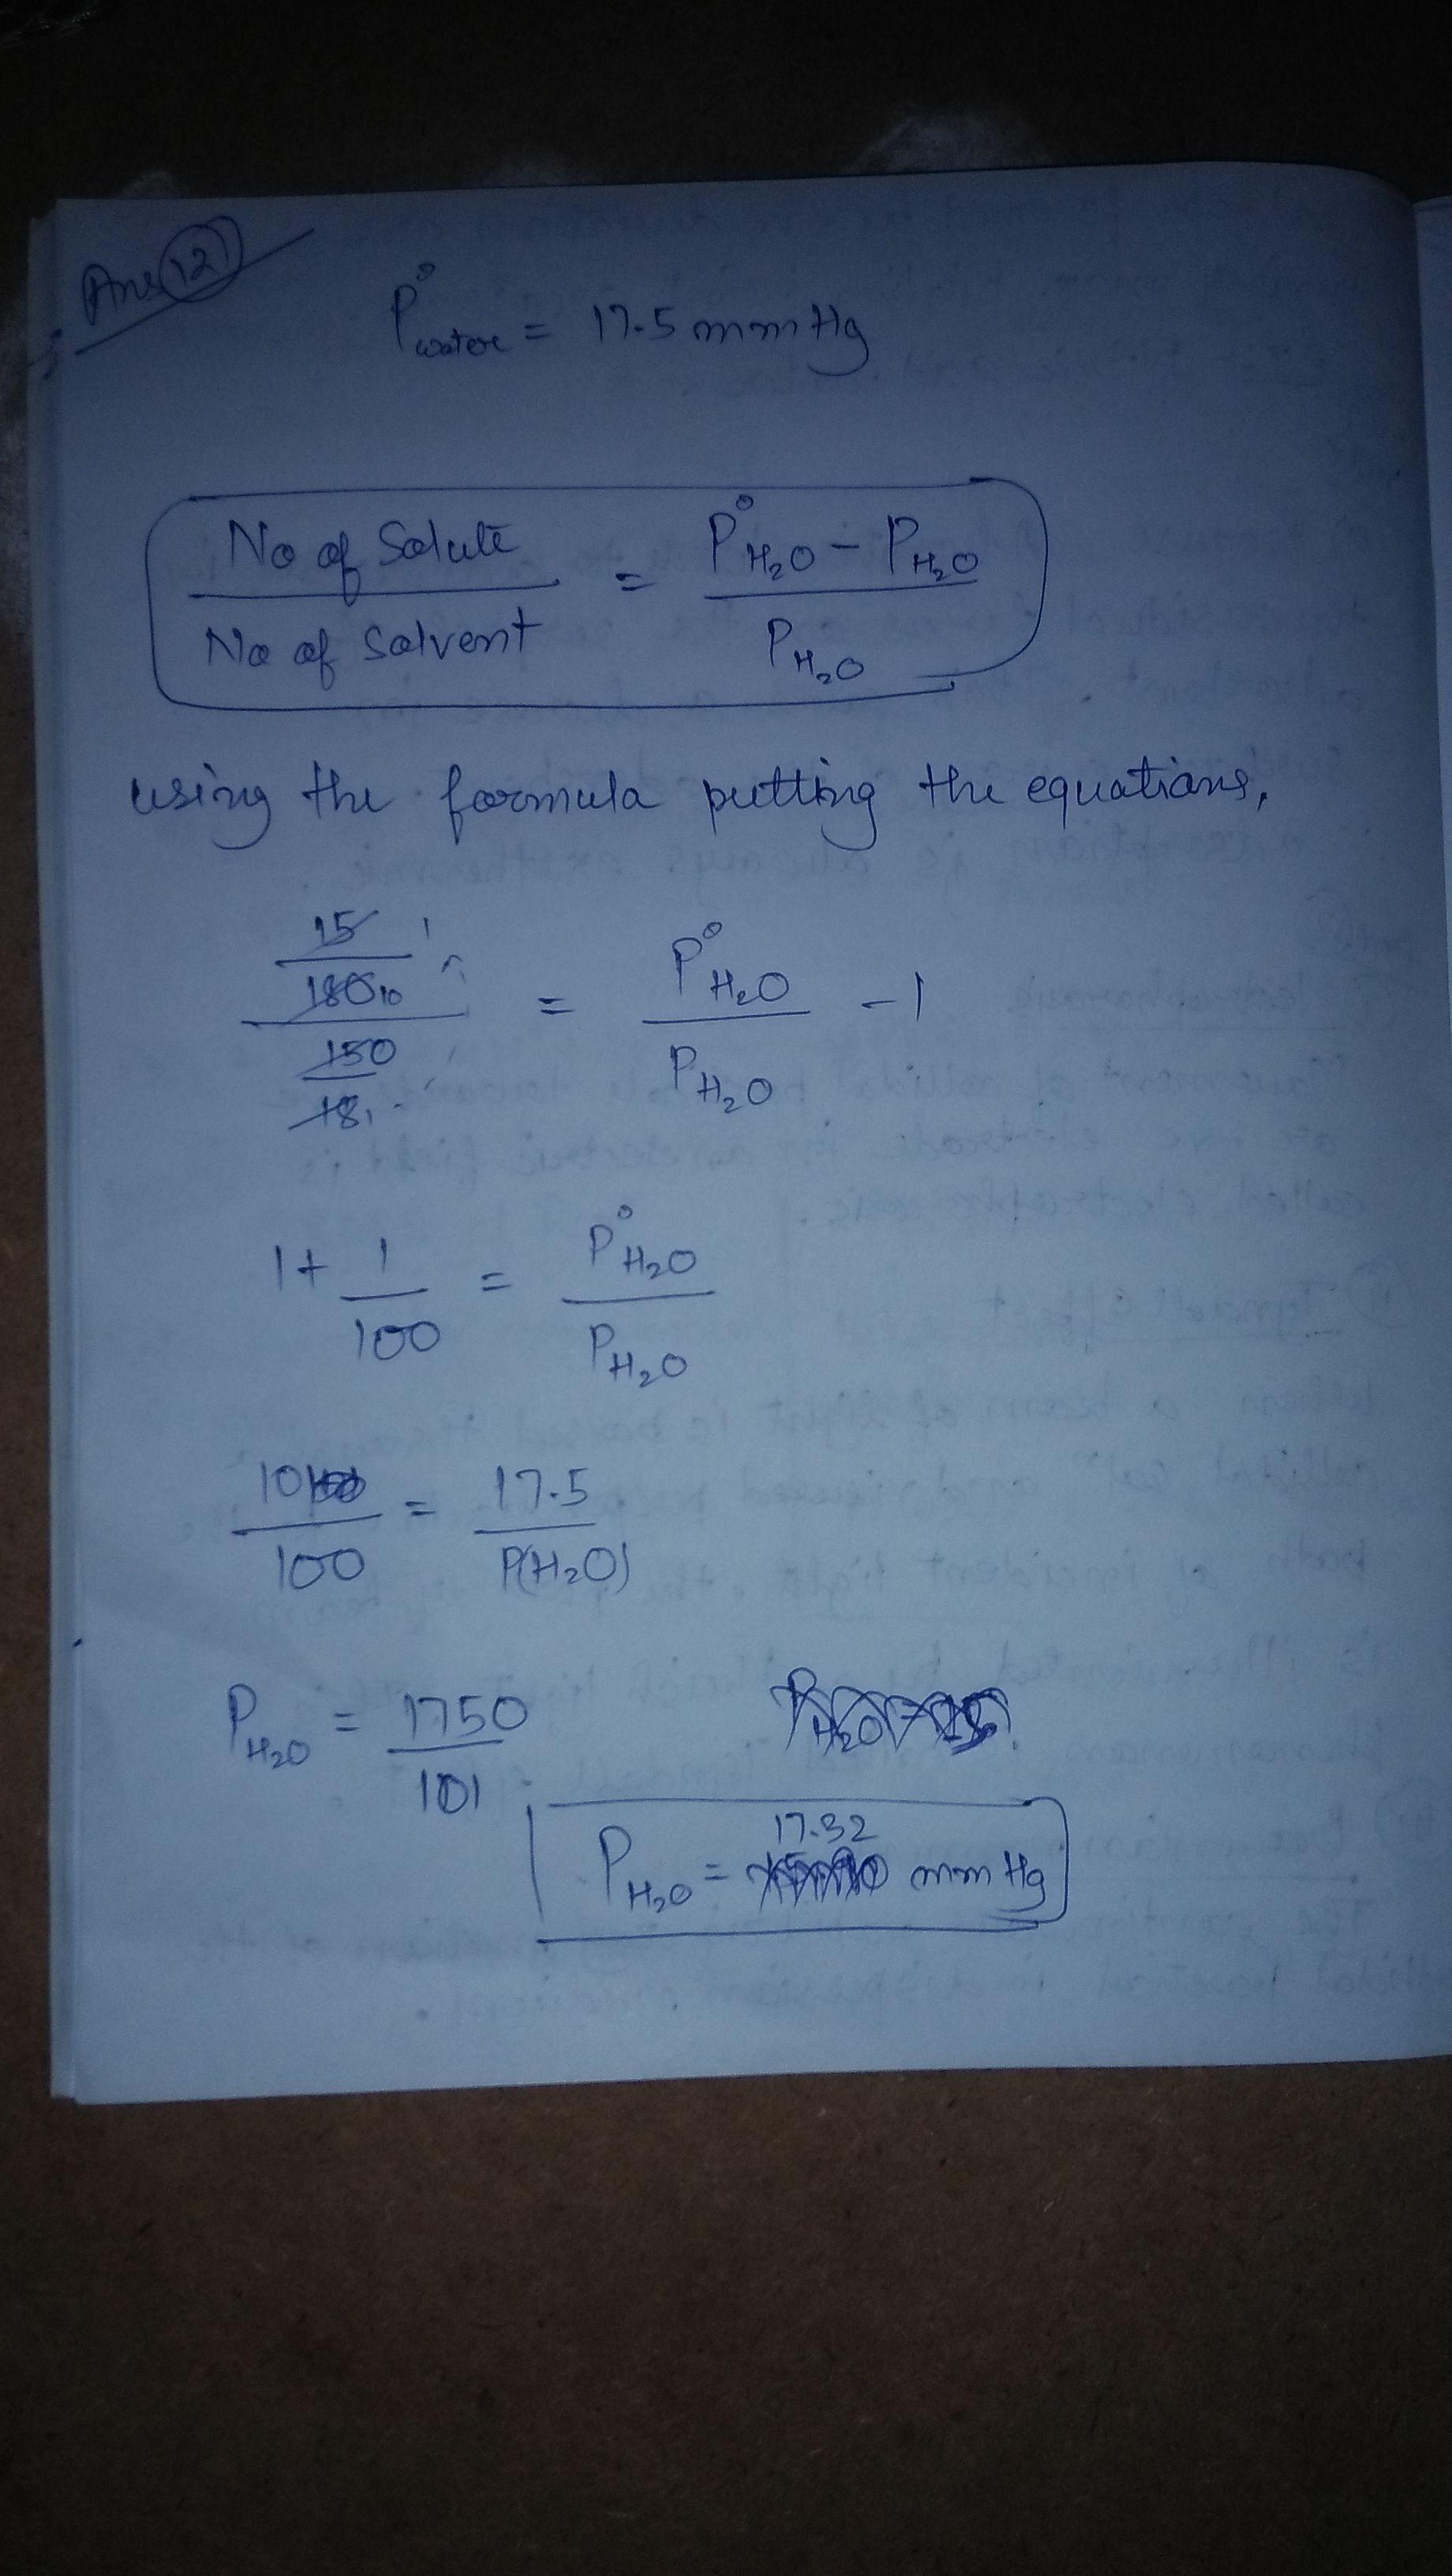 Ans (12)
P°water = 17.5 mm Hg
No of Solute / No of Solvent = P°H₂O - PH₂O / PH₂O
using the formula putting the equations,
15/180 / 150/18 = P°H₂O / PH₂O - 1
1 + 1/100 = P°H₂O / PH₂O
101/100 = 17.5 / P(H₂O)
PH₂O = 1750/101
PH₂O = 17.32 mm Hg